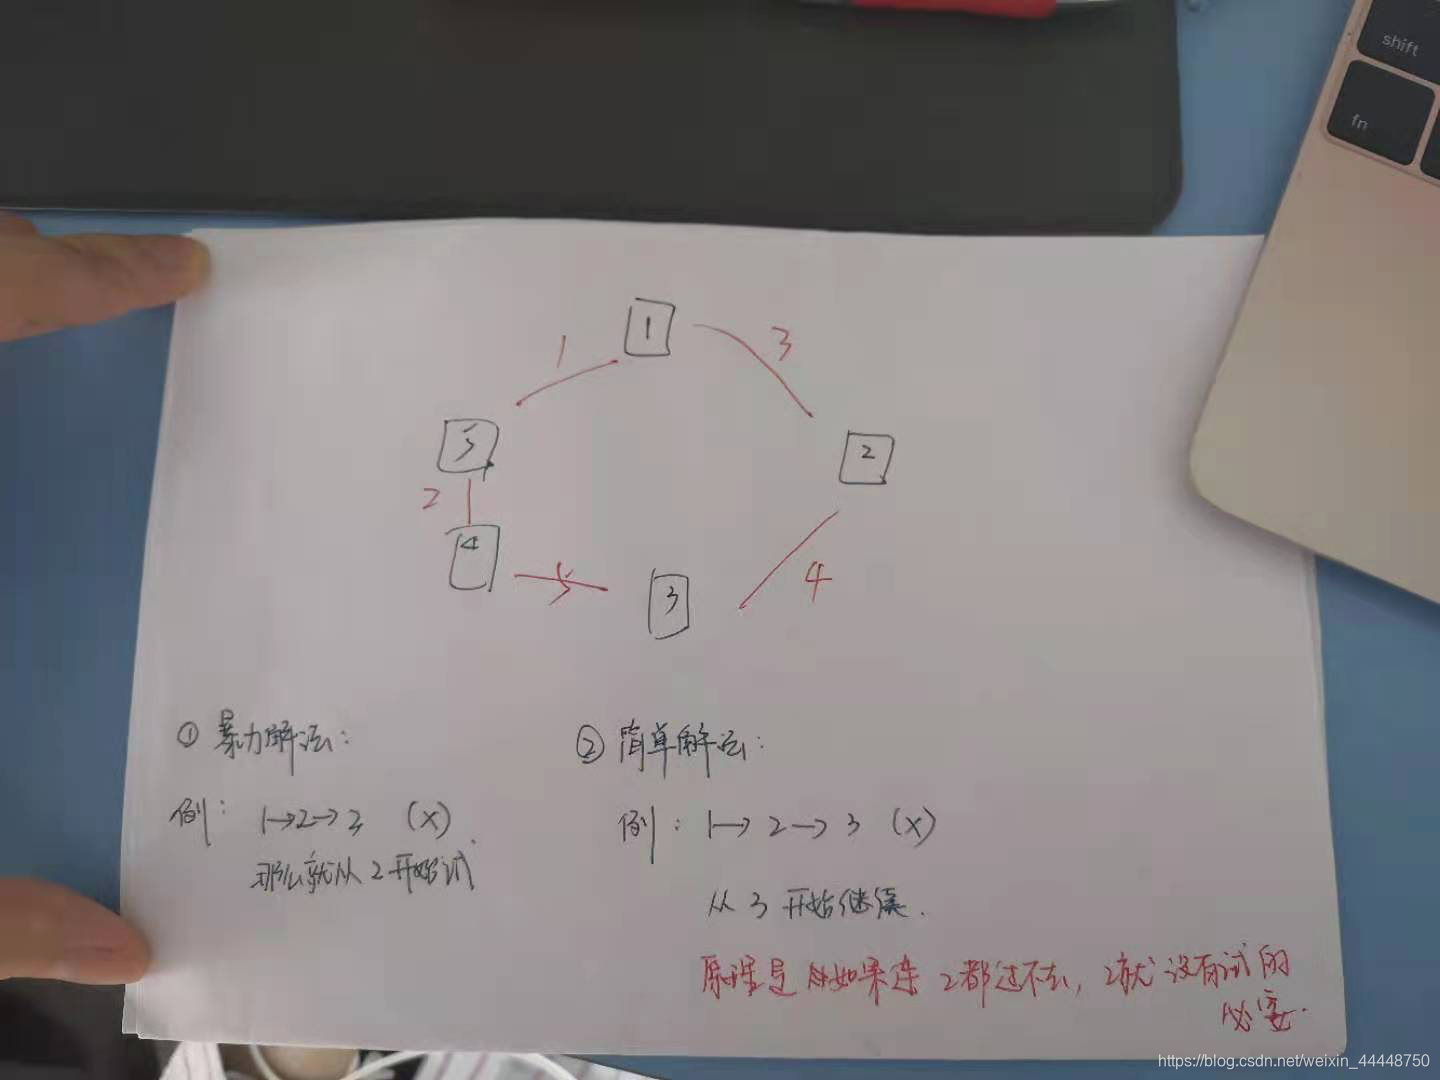 shift
fn
1
1
3
5
2
2
4
5
3
4
① 暴力解法：
例： 1→2→3 （X）
那么就从2开始试
② 简单解法：
例： 1→ 2→ 3 （X）
从 3 开始继续.
原理是 如果连 2都过不去, 2就没有试的
必要.
https://blog.csdn.net/weixin_44448750